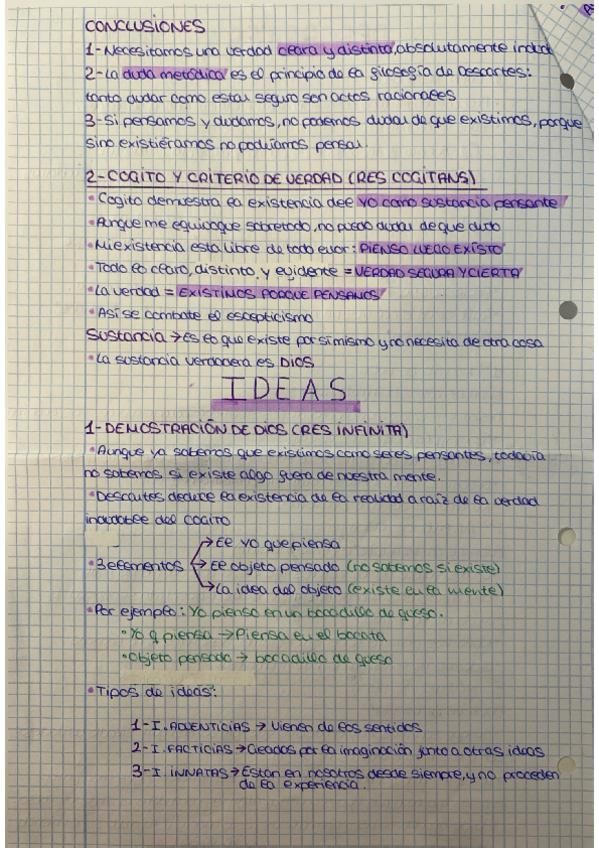 CONCLUSIONES
1-Necesitamos una verdad clara y distinta, absolutamente
2-La duda metódica es el principio de la filosofía de Descartes:
tanto dudar como estar seguro son actos racionales
3-Si pensamos y dudamos, no podemos dudar de que existimos, porque
sino existiéramos no podríamos pensar.
2-COGITO Y CRITERIO DE VERDAD (RES COGITANS)
• Cogito demuestra la existencia del yo como sustancia pensante
• Aunque me equivoque sobretodo, no puedo dudar de que dudo
• Mi existencia esta libre de todo error: PIENSO LUEGO EXISTO
• Todo lo claro, distinto, y evidente = VERDAD SEGURA Y CIERTA
• La verdad = EXISTIMOS PORQUE PENSAMOS
• Así se combate el escepticismo
Sustancia → Es lo que existe por si mismo y no necesita de otra cosa
• La sustancia verdadera es DIOS
IDEAS
1-DEMOSTRACIÓN DE DIOS (RES INFINITA)
• Aunque ya sabemos que existimos como seres pensantes, todavía
no sabemos si existe algo fuera de nuestra mente.
• Descartes deduce la existencia de la realidad a raíz de la verdad
indudable del COGITO
→ El yo que piensa
• 3 elementos → El objeto pensado (no sabemos si existe)
→ La idea del objeto (existe en la mente)
• Por ejemplo: Yo pienso en un bocadillo de queso.
• Yo q piensa → Piensa en el bocata
• Objeto pensado → bocadillo de queso
• Tipos de ideas:
1-I. ADVENTICIAS → Vienen de los sentidos
2-I. FACTICIAS → Creados por la imaginación junto a otras ideas
3-I. INNATAS → Estan en nosotros desde siempre, y no proceden
de la experiencia.